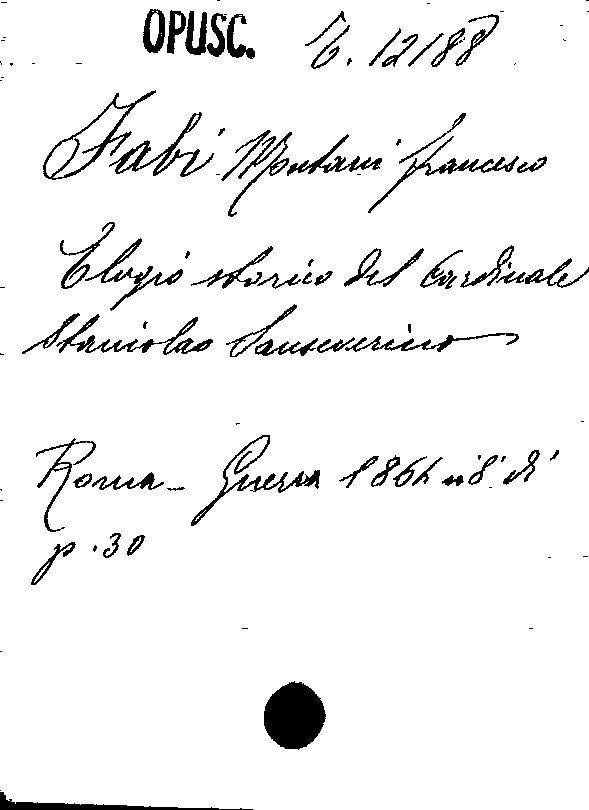 OPUSC. T. 12188
Fabi Montani Francesco
Elogio storico del Cardinale
Stanislao Sanseverino
Roma - Guerra 1864 in 8° di
p. 30